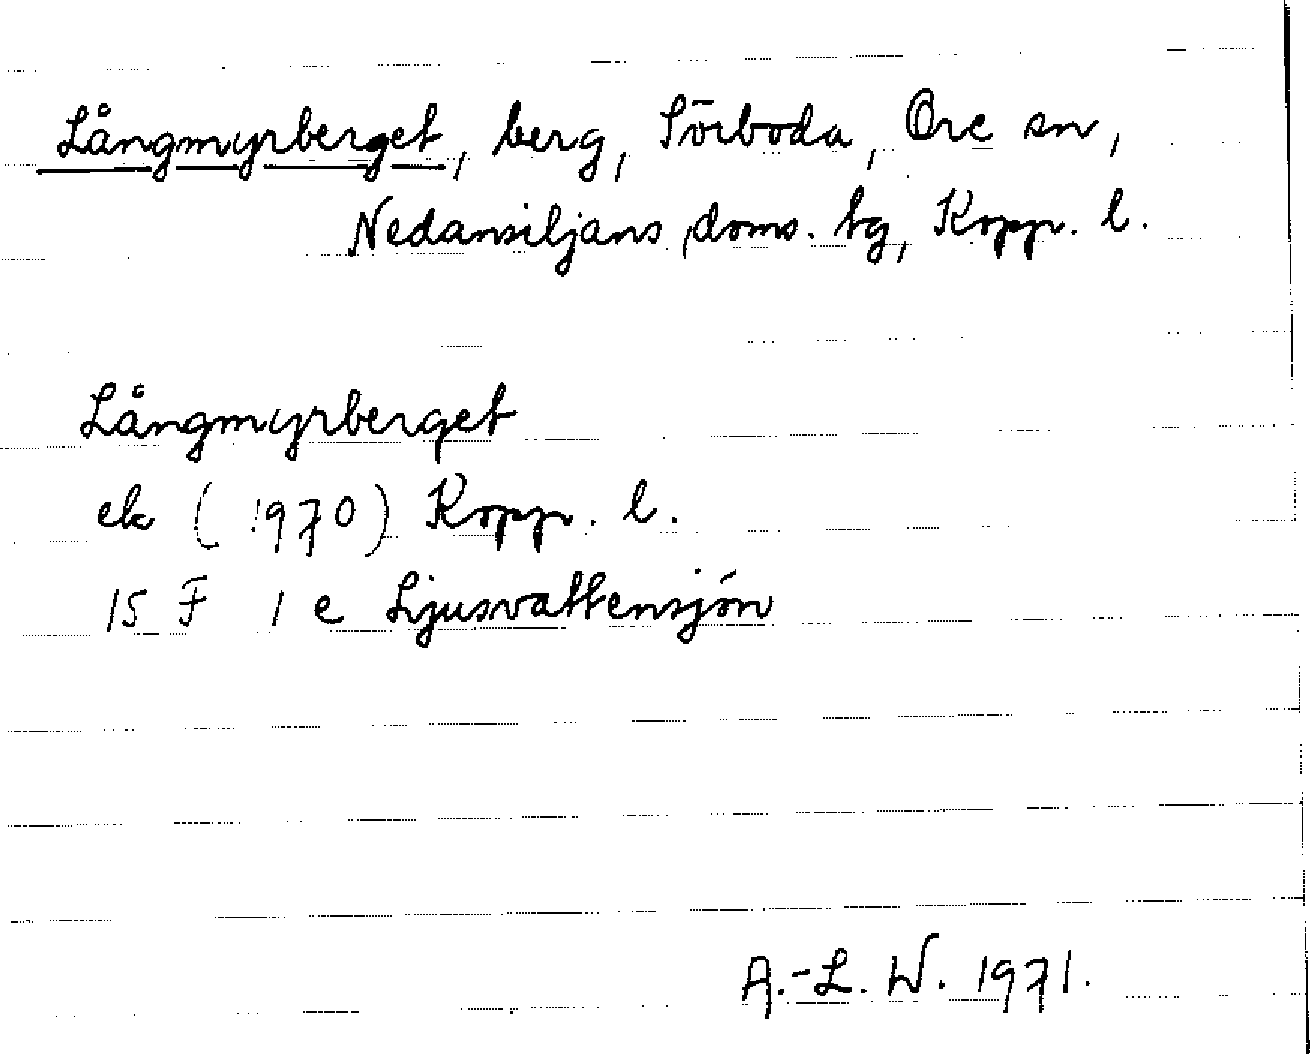 Långmyrberget, berg, Sörboda, Ore sn,
Nedansiljans doms. tg, Kopp. l.
Långmyrberget
ek (1970) Kopp. l.
15 F 1 e Ljusvattensjön
A.-L. W. 1971.